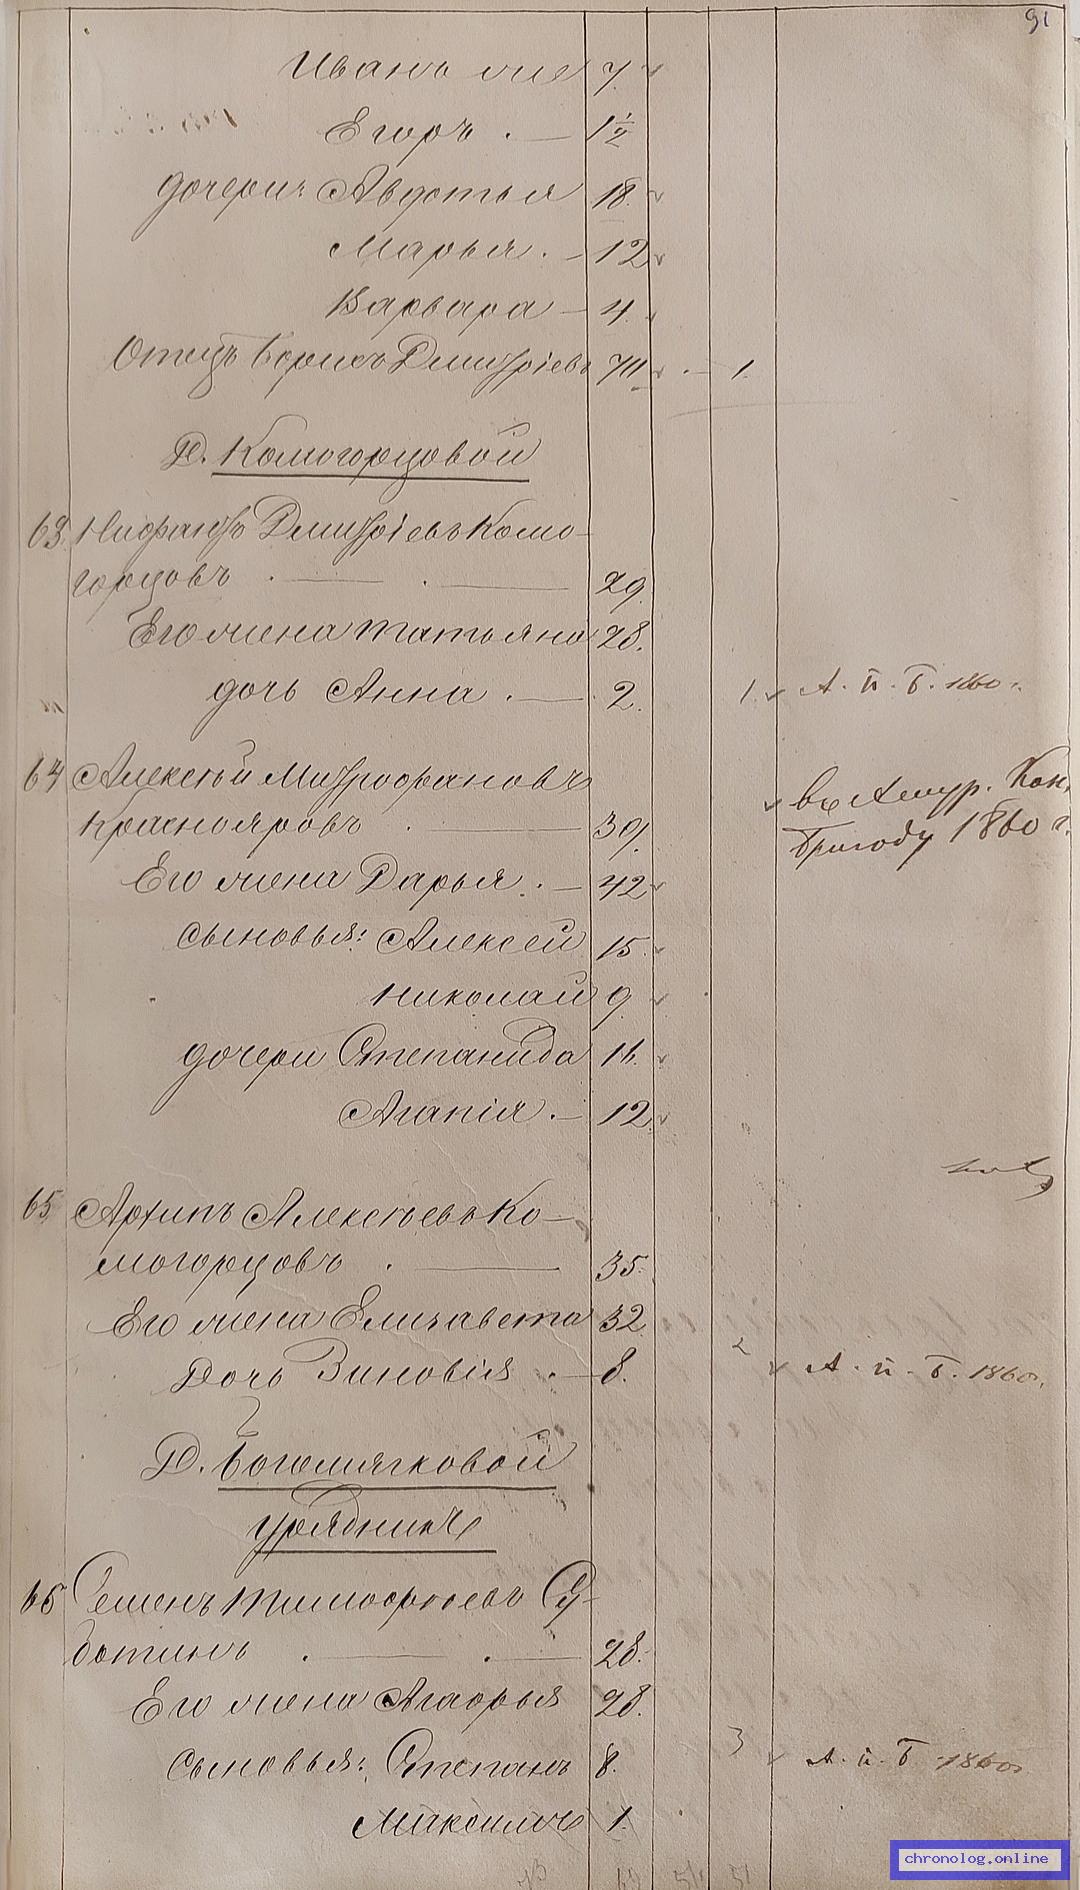 91
Иванъ 7
Егоръ . — 1½
дочери: Авдотья 18.
Марья . — 12
Варвара — 4.
Отецъ Борисъ Дмитріевъ 1.
Д. Комогорцовой
63. Нифантъ Дмитріевъ Комо-
горцовъ . — . — 29.
Его жена Татьяна 28.
дочь Анна . — 2. 1. А. п. Б. 1860 г.
64 Алексѣй Митрофановъ
Краснояровъ . — 39. въ Амур. Кон.
бригаду 1860 г.
Его жена Дарья . — 42
сыновья: Алексей 15.
Николай 9.
дочери Степанида 16.
Агапія . — 12
65 Архипъ Алексѣевъ Ко-
могорцовъ . — 35.
Его жена Елизавета 32.
Дочь Зиновія . — 8. 2 А. п. Б. 1860.
Д. Богомягковой
Урядникъ
66 Семенъ Тимофѣевъ Су-
ботинъ . — . — 28.
Его жена Агафья 28.
сыновья: Степанъ 8. 3 А. п. Б. 1860
Максимъ 1.
chronolog.online